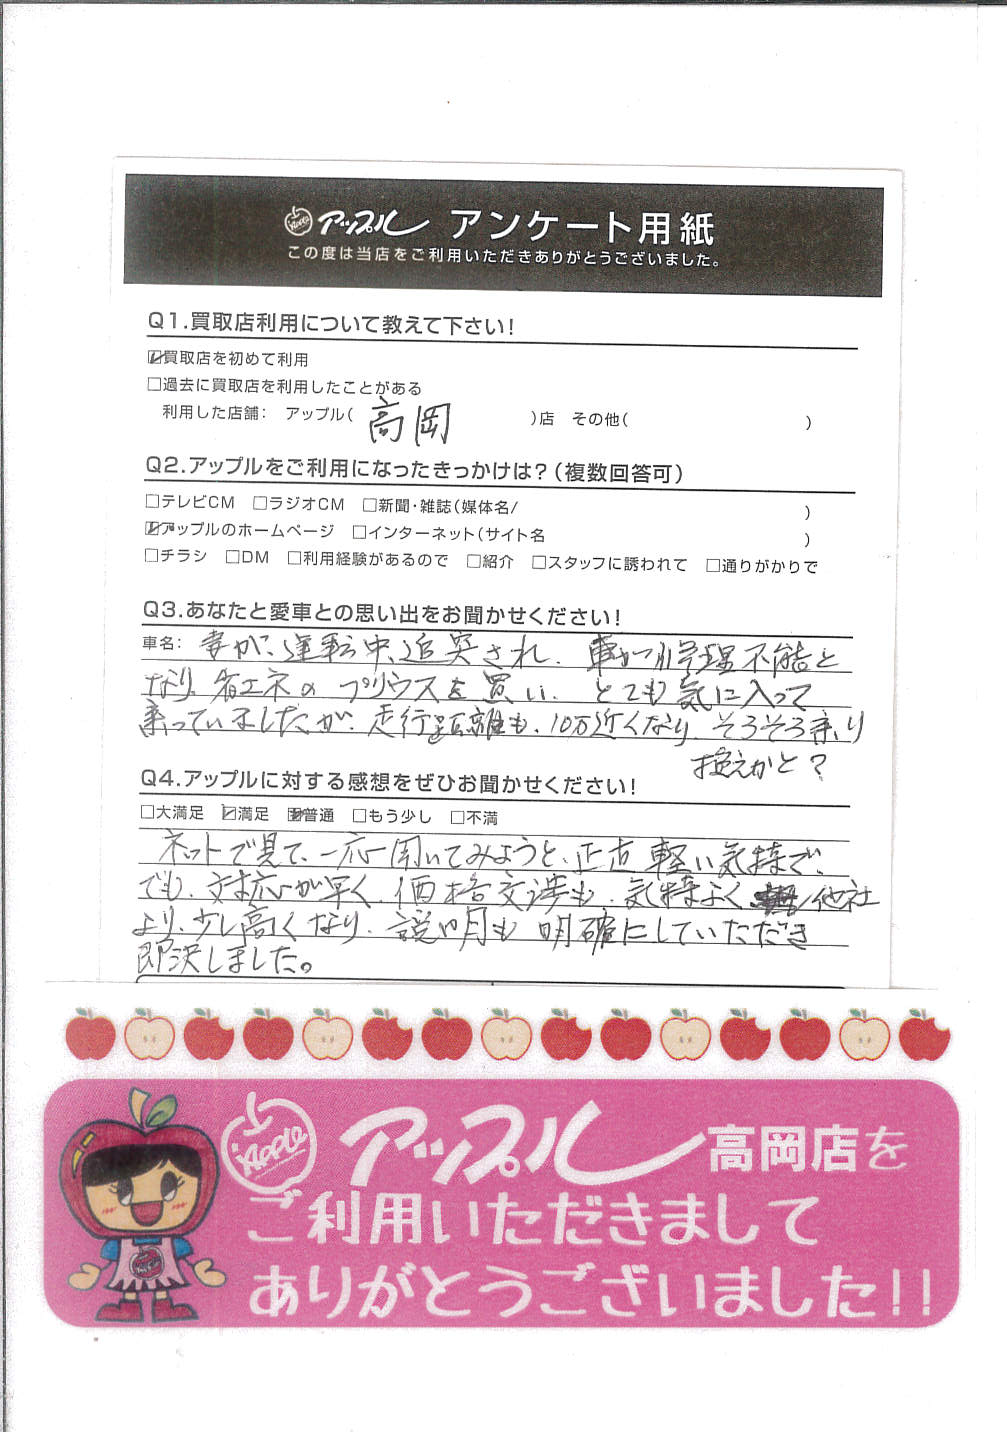 Apple アップル アンケート用紙
この度は当店をご利用いただきありがとうございました。
Q1.買取店利用について教えて下さい!
☑買取店を初めて利用
□過去に買取店を利用したことがある
利用した店舗: アップル( 高岡 )店 その他( )
Q2.アップルをご利用になったきっかけは?(複数回答可)
□テレビCM □ラジオCM □新聞・雑誌(媒体名/ )
☑アップルのホームページ □インターネット(サイト名 )
□チラシ □DM □利用経験があるので □紹介 □スタッフに誘われて □通りがかりで
Q3.あなたと愛車との思い出をお聞かせください!
車名: 妻が、運転中、追突され、車が修理不能と
なり、省エネのプリウスを買い、とても気に入って
乗っていましたが、走行距離も、10万近くなり、そろそろ乗り
換えかと?
Q4.アップルに対する感想をぜひお聞かせください!
□大満足 ☑満足 ☑普通 □もう少し □不満
ネットで見て、一応聞いてみようと、正直軽い気持で、
でも、対応が早く、価格交渉も、気持よく 他社
より、少し高くなり、説明も明確にしていただき
即決しました。
Apple アップル 高岡店を
ご利用いただきまして
ありがとうございました!!